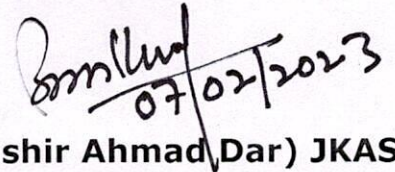 07/02/2023
shir Ahmad Dar) JKAS